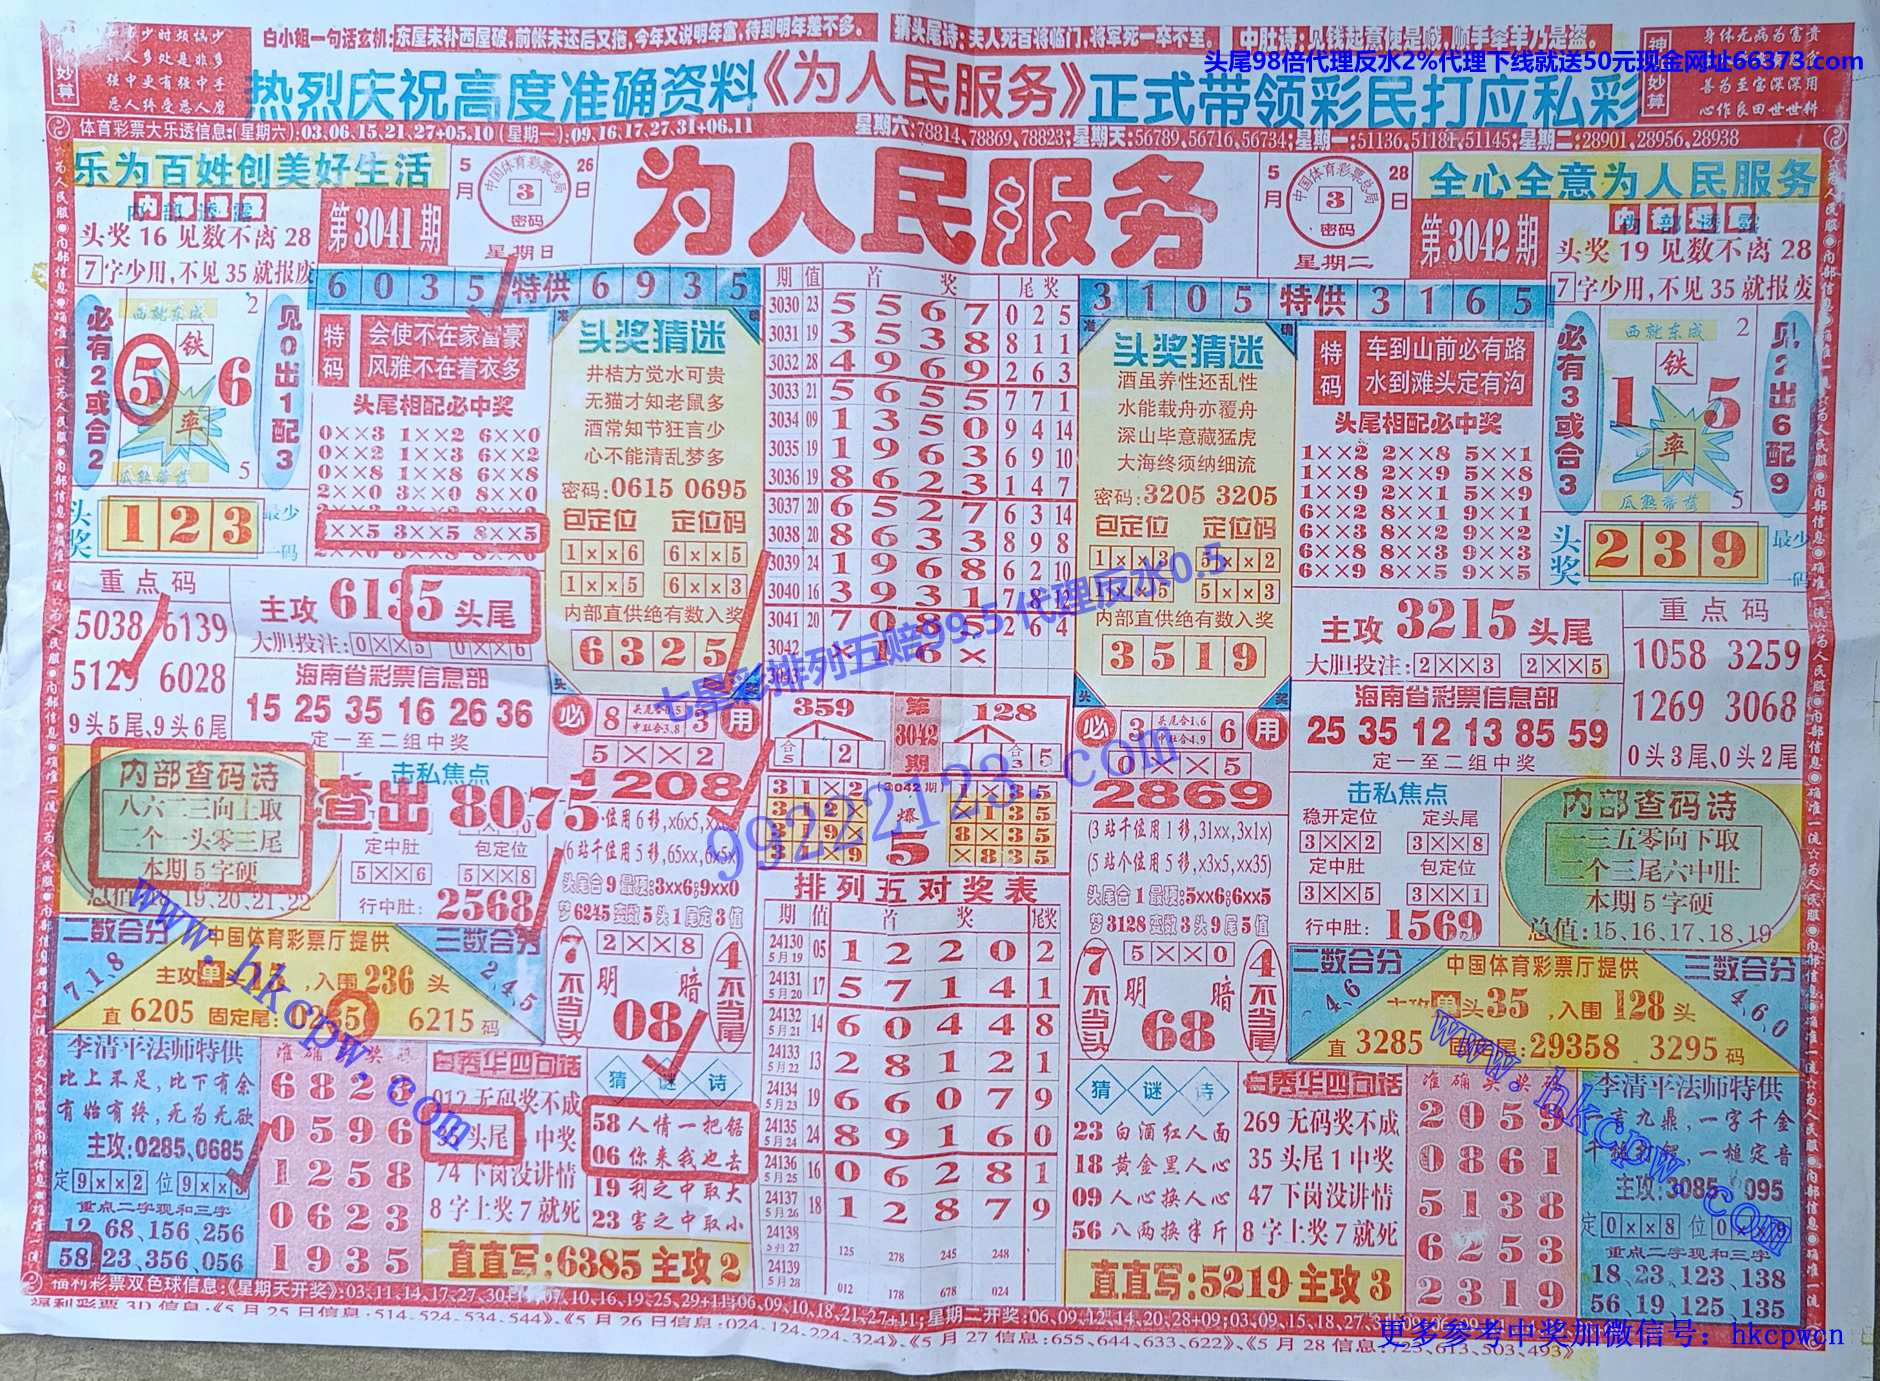 白小姐一句话玄机:东屋未补西屋破,前帐未还后又拖,今年又说明年富,待到明年差不多。
猜头尾诗:夫人死百将临门,将军死一卒不至。
中肚诗:见钱起意便是贼,顺手牵羊乃是盗。
头尾98倍代理反水2%代理下线就送50元现金网址66373.com
热烈庆祝高度准确资料《为人民服务》正式带领彩民打应私彩
身体无病为富贵
善为至宝深深用
心作良田世世耕
强中更有强中手
恶人终受恶人磨
体育彩票大乐透信息:(星期六):03,06,15,21,27+05,10(星期一):09,16,17,27,31+06,11
星期六:78814,78869,78823;星期天:56789,56716,56734;星期一:51136,51181,51145;星期二:28901,28956,28938
乐为百姓创美好生活
内部透露
头奖 16 见数不离 28
7字少用,不见35就报废
第3041期
5月26日
中国体育彩票总局
3
密码
星期日
为人民服务
5月28日
中国体育彩票总局
3
密码
星期二
第3042期
全心全意为人民服务
头奖 19 见数不离 28
7字少用,不见35就报废
6035特供6935
必有2或合2
西就东成
2
铁
5 6
率
瓜熟蒂落
5
见0出1配3
头奖
123
最少一码
特码
会使不在家富豪
风雅不在着衣多
头尾相配必中奖
0××3 1××2 6××0
0××2 1××3 6××2
0××8 1××8 6××8
2××0 3××0 8××0
××5 3××5 8××5
头奖猜迷
井桔方觉水可贵
无猫才知老鼠多
酒常知节狂言少
心不能清乱梦多
密码:0615 0695
包定位 定位码
1××6 6××5
1××5 6××3
内部直供绝有数入奖
6325
重点码
5038 6139
5129 6028
9头5尾、9头6尾
主攻 6135 头尾
大胆投注:0××5 0××6
海南省彩票信息部
15 25 35 16 26 36
定一至二组中奖
内部查码诗
八六二三向上取
二个一头零三尾
本期5字硬
19、20、21、22
击私焦点
查出 8075
定中肚 包定位
5××6 5××8
行中肚:2568
必 8 3 用
5××2
1208
(6站千位用5移,65xx,6x5x)
头尾合9最硬:3xx6;9xx0
梦6245变数5头1尾定3值
7不当头
2××8
明 暗
08
4不当尾
二数合分
7、1、8
中国体育彩票厅提供
,入围 236 头
直 6205 固定尾: 6215 码
三数合分
2、4、5
李清平法师特供
比上不足,比下有余
有始有终,无为无欲
主攻:0285、0685
定9××2位9××3
重点二字现和三字
12、68、156、256
58、23、356、056
6823
0596
1258
0623
1935
白秀华四句话
012无码奖不成
头尾 中奖
74下岗没讲情
8字上奖7就死
猜谜诗
58 人情一把锯
06 你来我也去
19 利之中取大
23 害之中取小
直直写:6385 主攻 2
期 值 首奖 尾奖
3030 23 5567 025
3031 19 3538 811
3032 28 4969 263
3033 21 5655 771
3034 09 1350 9 4 14
3035 19 1963 6 9 10
3036 19 8623 147
3037 20 6527 6 3 14
3038 20 8633 898
3039 24 1968 6 2 10
3040 16 3931 7 8 12
3041 20 7085 264
3042 ×16×
359
合5 2
第3042期
128
合3 5
3042期
爆
5
31×2
排列五对奖表
期 值 首奖 尾奖
24130 5月19 05 1220 2
24131 5月20 17 5714 1
24132 5月21 14 6044 8
24133 5月22 13 2812 1
24134 5月23 19 6607 9
24135 5月24 24 8916 0
24136 5月25 16 0628 1
24137 5月26 18 1287 9
24138 5月27 125 278 245 248
24139 5月28 012 178 678 024
3105特供3165
头奖猜迷
酒虽养性还乱性
水能载舟亦覆舟
深山毕意藏猛虎
大海终须纳细流
密码:3205 3205
包定位 定位码
1××3 5××2
1××5 5××3
内部直供绝有数入奖
3519
特码
车到山前必有路
水到滩头定有沟
头尾相配必中奖
1××2 2××8 5××1
1××8 2××9 5××8
1××9 2××1 5××9
6××3 8××1 9××1
6××2 8××2 9××2
6××8 8××3 9××3
6××9 8××5 9××5
必有3或合3
西就东成
2
铁
1 5
率
瓜熟蒂落
5
见2出6配9
头奖
239
最少一码
主攻 3215 头尾
大胆投注:2××3 2××5
海南省彩票信息部
25 35 12 13 85 59
定一至二组中奖
重点码
1058 3259
1269 3068
0头3尾、0头2尾
必 3 头尾合1.6 中肚合4.9 6 用
0××5
2869
(3站千位用1移,31xx,3x1x)
(5站个位用5移,x3x5,xx35)
头尾合1最硬:5xx6;6xx5
梦3128变数3头9尾5值
击私焦点
稳开定位 定头尾
3××2 3××8
定中肚 包定位
3××5 3××1
行中肚:1569
内部查码诗
一三五零向下取
二个三尾六中肚
本期5字硬
总值:15、16、17、18、19
7不当头
5××0
明 暗
68
4不当尾
二数合分
4、6
中国体育彩票厅提供
头35,入围 128 头
直 3285 29358 3295 码
三数合分
4、6、0
猜谜诗
23 白酒红人面
18 黄金黑人心
09 人心换人心
56 八两换半斤
白秀华四句话
269无码奖不成
35头尾1中奖
47下岗没讲情
8字上奖7就死
直直写:5219 主攻 3
2059
0861
5138
6253
2319
李清平法师特供
一言九鼎,一字千金
一槌定音
主攻:3085、
定0××8位
重点二字现和三字
18、23、123、138
56、19、125、135
福利彩票双色球信息:《星期天开奖》:03,11,14,17,27,30+11;07,10,16,19,25,29+11;06,09,10,18,21,27+11;星期二开奖:06,09,12,14,20,28+09;03,09,15,18,27
福利彩票3D信息:《5月25日信息:514,524,534,544》、《5月26日信息:024,124,224,324》、《5月27信息:655,644,633,622》、《5月28信息:723,613,503,493》
七星彩排列五赔99.5 代理反水0.5
99222123.com
www.hkcpw.com
www.hkcpw.com
更多参考中奖加微信号:hkcpwcn